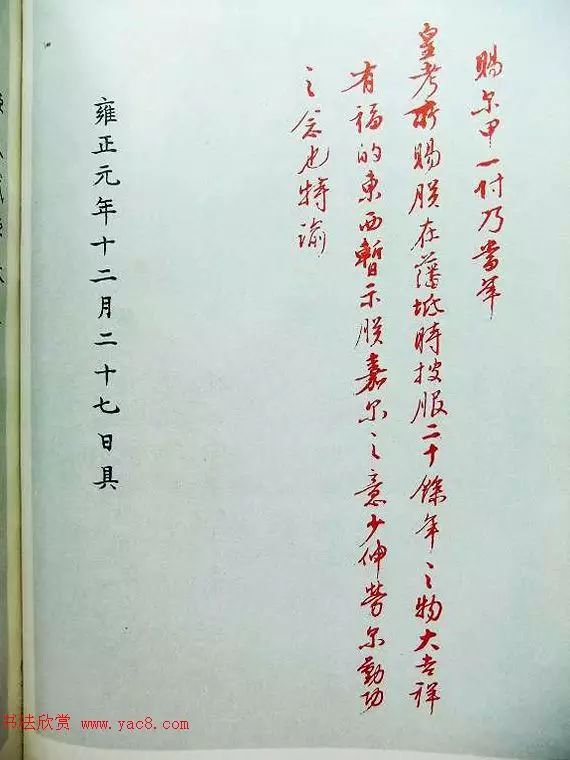 賜尔甲一付乃當年
皇考所賜朕在藩邸時披服二十餘年之物大吉祥
有福的東西暫示朕嘉尔之意少伸勞尔勤功
之念也特諭
雍正元年十二月二十七日具
书法欣赏 www.yac8.com